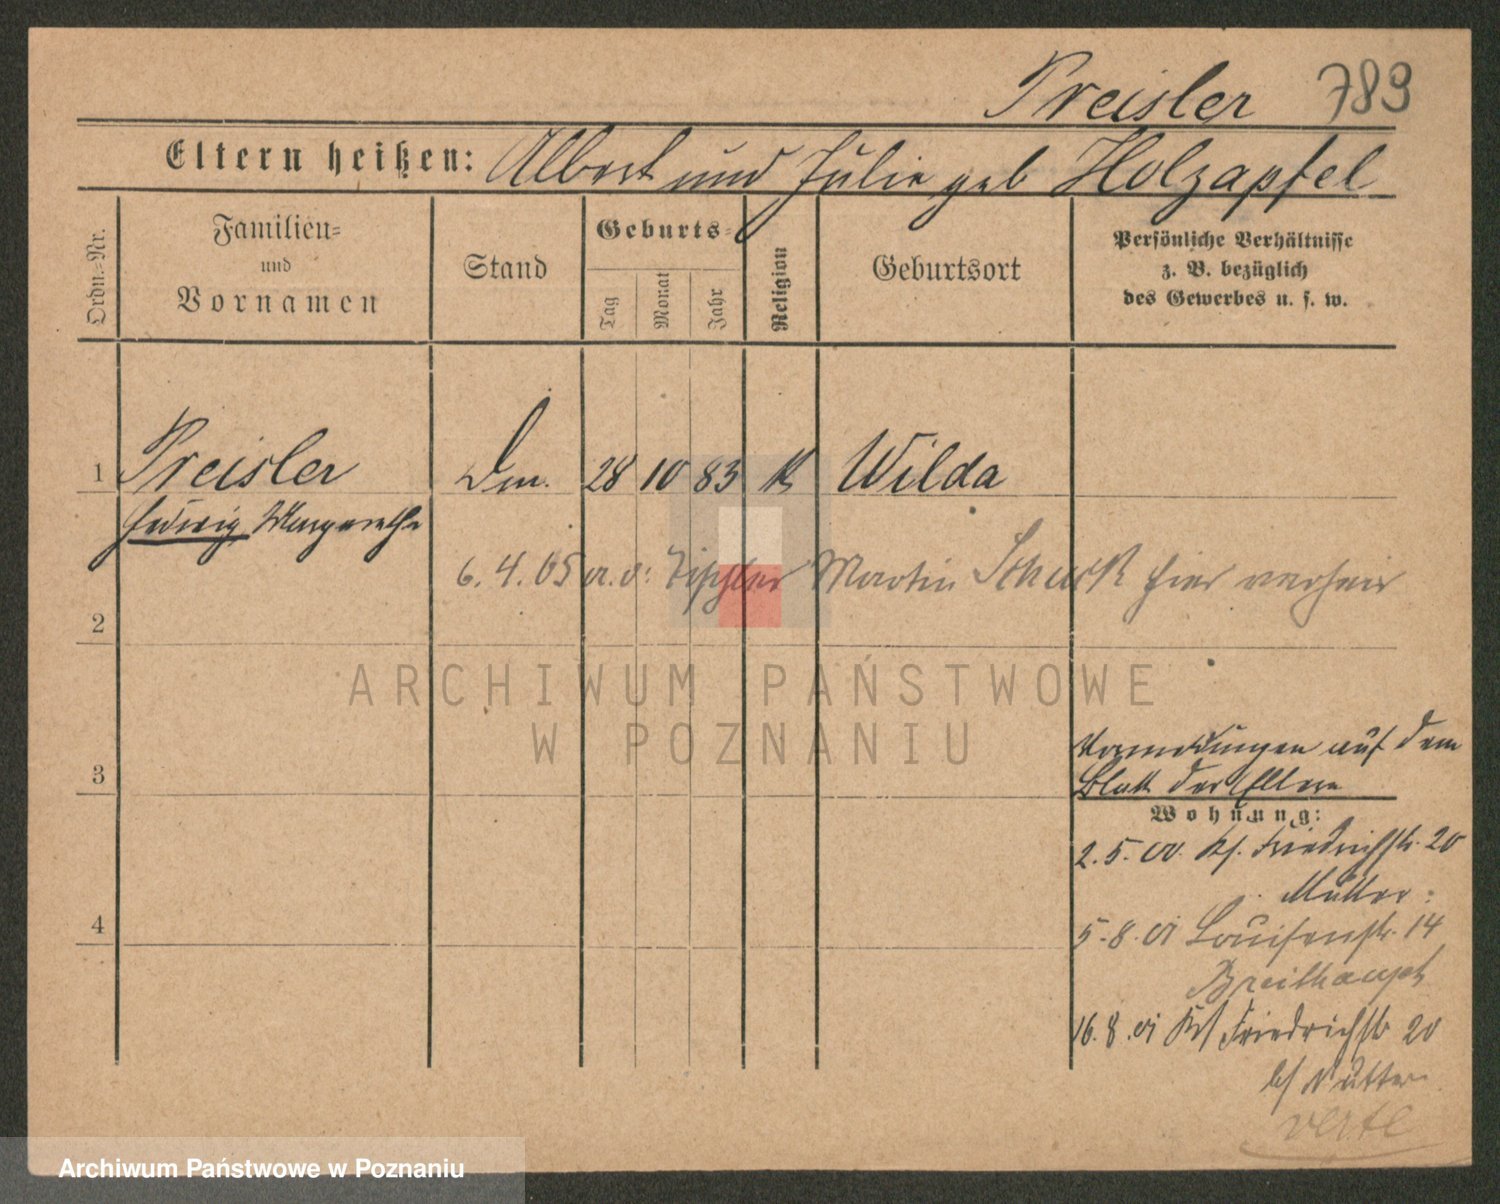 Preisler 789
Eltern heißen: Albert und Julie geb Holzapfel
Ordn.-Nr.
Familien- und Vornamen
Stand
Geburts-
Tag
Monat
Jahr
Religion
Geburtsort
Persönliche Verhältnisse
z. B. bezüglich
des Gewerbes u. s. w.
1 Preisler Dm. 28 10 83 K Wilda
Hedwig, Margarethe
6. 4. 05 Tischler Martin hier verheir
2
ARCHIWUM PAŃSTWOWE
W POZNANIU
3
Vormeldungen auf dem
Blatt der Eltern
Wohnung:
2. 5. 00. Kl. Friedrichstr. 20
Mutter
4
5. 8. 01 Louisenstr. 14
Breithaupt
16. 8. 01 Kl Friedrichstr 20
b/ Mutter
verte
Archiwum Państwowe w Poznaniu